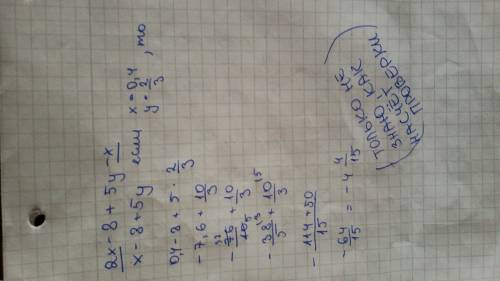 2x - 8 + 5y - x
x - 8 + 5y если x = 0,4
y = 2/3 , то
0,4 - 8 + 5 · 2/3
- 7,6 + 10/3
- 76/10 + 10/3
- 38/5 + 10/3
- 114 + 50 / 15
- 64/15 = - 4 4/15
ТОЛЬКО НЕ
ЗНАЮ КАК
НАСЧЁТ
ПРОВЕРКИ